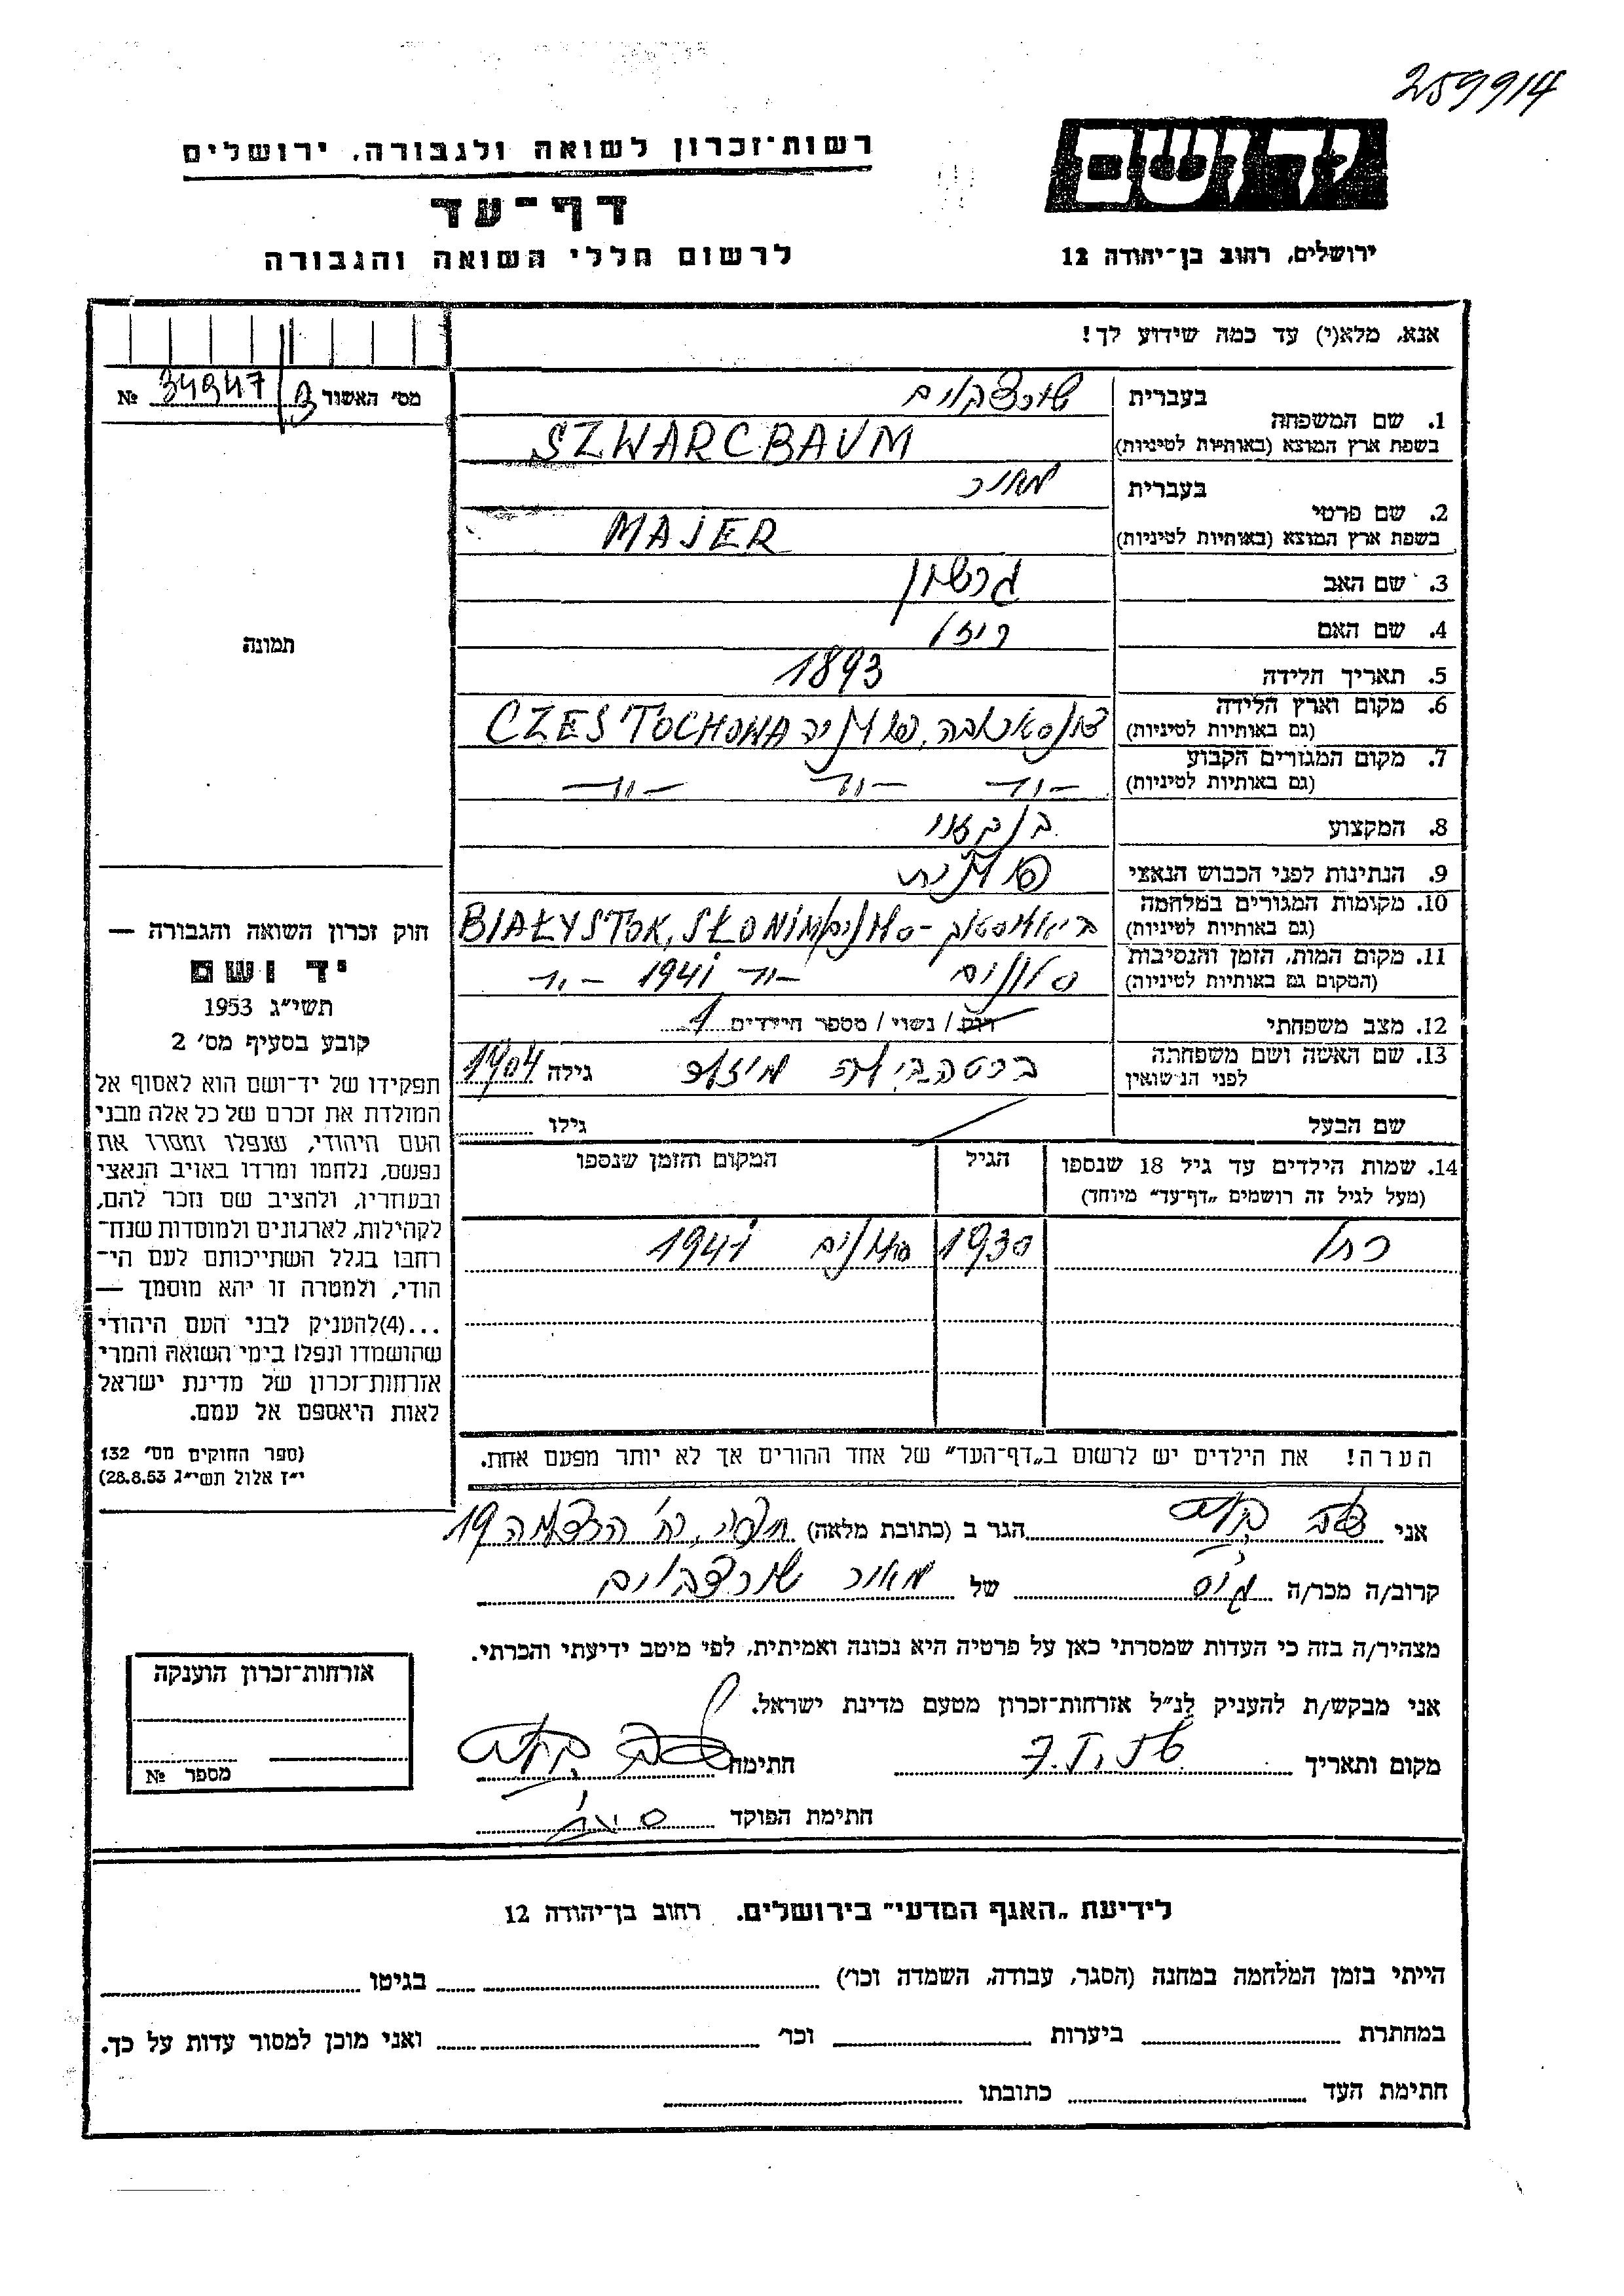 259914
יד ושם
רשות־זכרון לשואה ולגבורה, ירושלים
דף־עד
לרשום חללי השואה והגבורה
ירושלים, רחוב בן־יהודה 12
אנא, מלא(י) עד כמה שידוע לך!
מס' האשור 34947 №
תמונה
חוק זכרון השואה והגבורה —
יד ושם
תשי״ג 1953
קובע בסעיף מס' 2
תפקידו של יד־ושם הוא לאסוף אל
המולדת את זכרם של כל אלה מבני
העם היהודי, שנפלו ומסרו את
נפשם, נלחמו ומרדו באויב הנאצי
ובעוזריו, ולהציב שם וזכר להם,
לקהילות, לארגונים ולמוסדות שנח־
רחבו בגלל השתייכותם לעם הי־
הודי, ולמטרה זו יהא מוסמך —
...(4)להעניק לבני העם היהודי
שהושמדו ונפלו בימי השואה והמרי
אזרחות־זכרון של מדינת ישראל
לאות היאספם אל עמם.
(ספר החוקים מס' 132
י״ז אלול תשי״ג 28.8.53)
1. שם המשפחה בעברית שורצבוים
בשפת ארץ המוצא (באותיות לטיניות) SZWARCBAUM
2. שם פרטי בעברית מאיר
בשפת ארץ המוצא (באותיות לטיניות) MAJER
3. שם האב גרשון
4. שם האם רייזל
5. תאריך הלידה 1893
6. מקום וארץ הלידה (גם באותיות לטיניות) פולניה CZESTOCHOWA
7. מקום המגורים הקבוע (גם באותיות לטיניות) –״– –״– –״–
8. המקצוע
9. הנתינות לפני הכבוש הנאצי פולנית
10. מקומות המגורים במלחמה (גם באותיות לטיניות) ביאליסטוק–סלונים BIAŁYSTOK, SŁONIM
11. מקום המות, הזמן והנסיבות (המקום גם באותיות לטיניות) סלונים –״– 1941 –״–
12. מצב משפחתי רווק / נשוי / מספר הילדים 1
13. שם האשה ושם משפחתה לפני הנישואין גילה 1904
שם הבעל גילו
14. שמות הילדים עד גיל 18 שנספו הגיל המקום והזמן שנספו
(מעל לגיל זה רושמים „דף־עד״ מיוחד)
רחל 1930 סלונים 1941
הערה! את הילדים יש לרשום ב„דף־העד״ של אחד ההורים אך לא יותר מפעם אחת.
אני הגר ב (כתובת מלאה) 19
קרוב/ה מכר/ה גיס של מאיר שורצבוים
מצהיר/ה בזה כי העדות שמסרתי כאן על פרטיה היא נכונה ואמיתית, לפי מיטב ידיעתי והכרתי.
אני מבקש/ת להעניק לנ״ל אזרחות־זכרון מטעם מדינת ישראל.
מקום ותאריך חתימה
חתימת הפוקד
אזרחות־זכרון הוענקה
מספר №
לידיעת „האגף המדעי״ בירושלים. רחוב בן־יהודה 12
הייתי בזמן המלחמה במחנה (הסגר, עבודה, השמדה וכו') בגיטו
במחתרת ביערות וכו' ואני מוכן למסור עדות על כך.
חתימת העד כתובתו